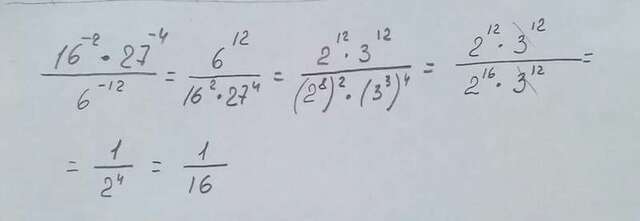 \frac{16^{-2} \cdot 27^{-4}}{6^{-12}} = \frac{6^{12}}{16^2 \cdot 27^4} = \frac{2^{12} \cdot 3^{12}}{(2^8)^2 \cdot (3^3)^4} = \frac{2^{12} \cdot 3^{12}}{2^{16} \cdot 3^{12}} =
= \frac{1}{2^4} = \frac{1}{16}